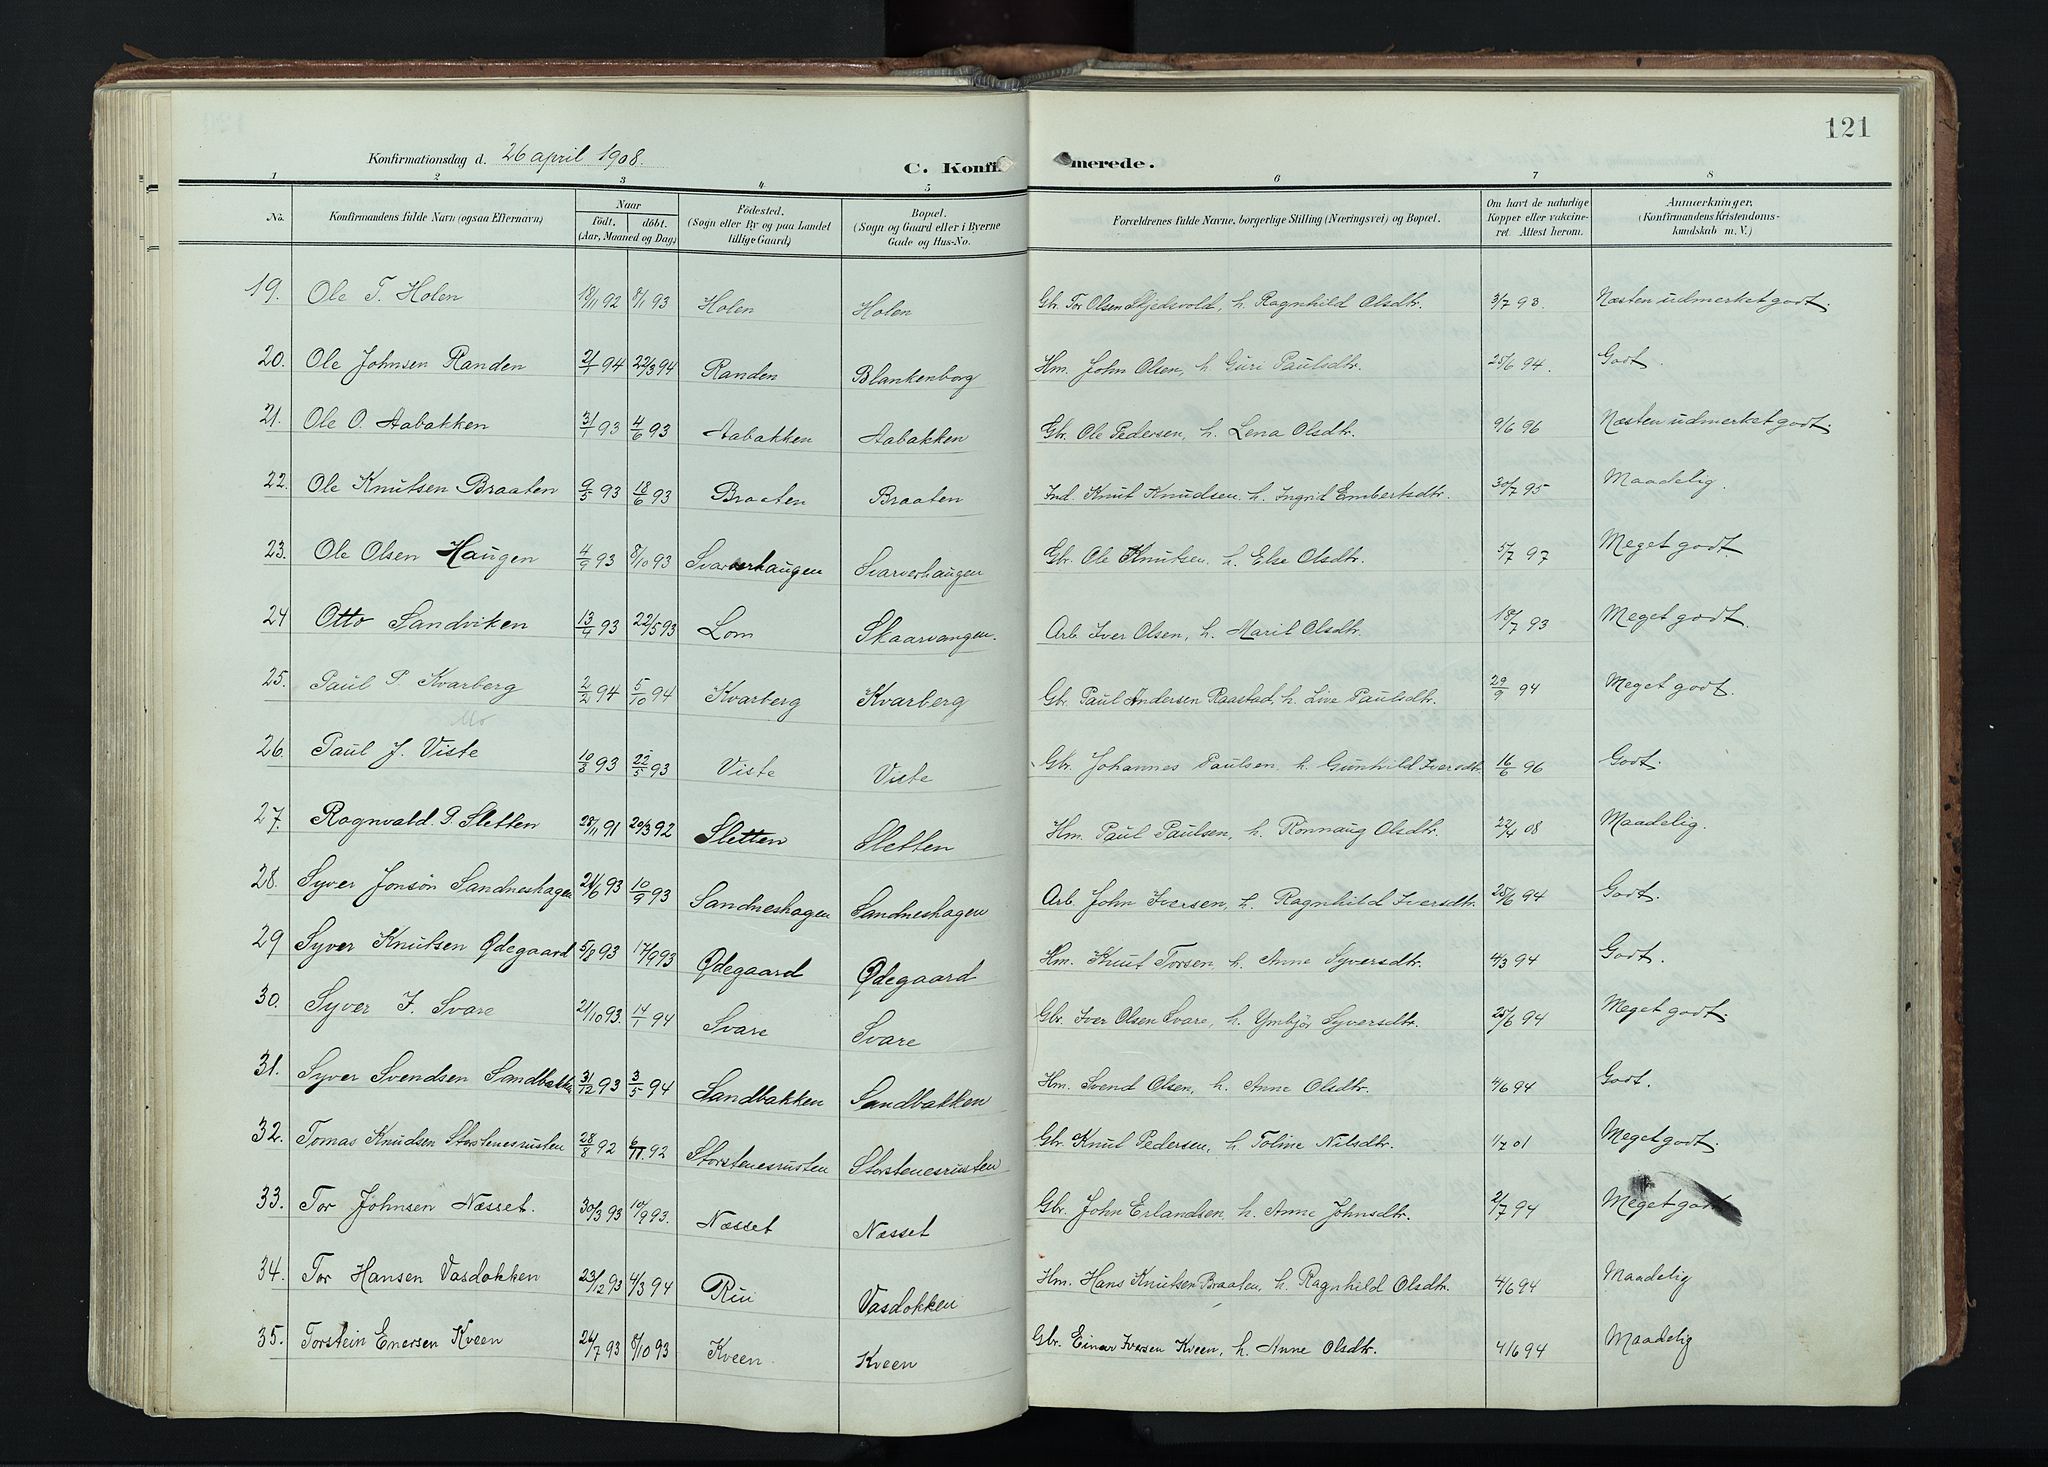 121
Konfirmationsdag d. 26 april 1908.
C. Konfirmerede.
1 2 3 4 5 6 7 8
No. Konfirmandens fulde Navn (ogsaa Efternavn) Naar født. døbt. (Aar, Maaned og Dag) Fødested. (Sogn eller By og paa Landet tillige Gaard) Bopæl. (Sogn og Gaard eller i Byerne Gade og Hus-No. Forældrenes fulde Navne, borgerlige Stilling (Næringsvei) og Bopæl. Om havt de naturlige Kopper eller vakcineret. Attest herom. Anmærkninger. (Konfirmandens Kristendomskundskab m. V.)
19. Ole T. Holen 18/11 92 8/1 93 Holen Holen Gbr. Tor Olsen Skjedsvold, h. Ragnhild Olsdtr. 3/7 93. Næsten udmerket godt.
20. Ole Johnsen Randen 2/1 94 22/3 94 Randen Blankenborg Hm. John Olsen, h. Guri Paulsdtr. 25/6 94. Godt.
21. Ole O. Aabakken 31/1 93 4/6 93 Aabakken Aabakken Gbr. Ole Pedersen, h. Lena Olsdtr. 9/6 96 Næsten udmerket godt.
22. Ole Knutsen Braaten 9/5 93 18/6 93 Braaten Braaten Ind. Knut Knudsen, h. Ingrid Embertsdtr. 30/7 95 Maadelig.
23. Ole Olsen Haugen 4/9 93 8/10 93 Svarverhaugen Svarverhaugen Gbr. Ole Knutsen, h. Else Olsdtr. 5/7 97 Meget godt
24 Otto Sandviken 13/4 93 22/5 93 Lom Skaarvangen. Arb. Iver Olsen, h. Marit Olsdtr. 18/7 93 Meget godt.
25. Paul P. Kvarberg 2/2 94 5/10 94 Kvarberg Kvarberg Gbr. Paul Andersen Raastad, h. Live Paulsdtr. 29/9 94 Meget godt.
Mo
26 Paul J. Viste 10/8 93 22/5 93 Viste Viste Gbr. Johannes Paulsen, h. Gunhild Iversdtr. 16/6 96 Godt.
27. Ragnvald P. Sletten 28/11 91 20/3 92 Sletten Sletten Hm. Paul Paulsen, h. Rønnaug Olsdtr. 22/4 08 Maadelig.
28. Syver Jonsøn Sandneshagen 21/6 93 10/9 93 Sandneshagen Sandneshagen Arb. John Iversen, h. Ragnhild Iversdtr. 25/6 94 Godt.
29 Syver Knutsen Ødegaard 5/8 93 17/9 93 Ødegaard Ødegaard Hm. Knut Torsen, h. Anne Syversdtr. 4/3 94 Godt.
30. Syver I. Svare 21/10 93. 14/1 94 Svare Svare Gbr. Iver Olsen Svare, h. Ymbjør Syversdtr. 25/6 94 Meget godt.
31. Syver Svendsen Sandbakken 31/12 93 3/5 94 Sandbakken Sandbakken Hm. Svend Olsen, h. Anne Olsdtr. 4/6 94 Godt.
32. Tomas Knudsen Storstenesrusten 28/8 92 6/11. 92 Storstenesrusten Storstenesrusten Gbr. Knut Pedersen, h. Toline Nilsdtr. 1/7 01 Meget godt.
33. Tor Johnsen Næsset. 30/3 93 10/9 93. Næsset Næsset Gbr. John Erlandsen, h. Anne Johnsdtr. 2/7 94 Meget godt
34. Tor Hansen Vasdokken 23/12 93 4/3 94 Rui Vasdokken Hm. Hans Knutsen Braaten, h. Ragnhild Olsdtr. 4/6 94 Maadelig
35. Torstein Enersen Kveen 26/7 93 8/10 93 Kveen Kveen Gbr. Einar Iversen Kveen, h. Anne Olsdtr. 4/6 94 Maadelig